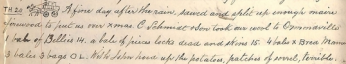 TH 20 A fine day after the rain, sawed and split up enough maire
firewood to put us over Xmas. C Schmidt & Son took our wool to Ormondville
1 bale of Bellies 14. a bale of pieces locks dead and skins 15. 4 bales X Bred
3 bales 3 bags O L. With Schon here up the potatoes, patches of sorrel, terrible.